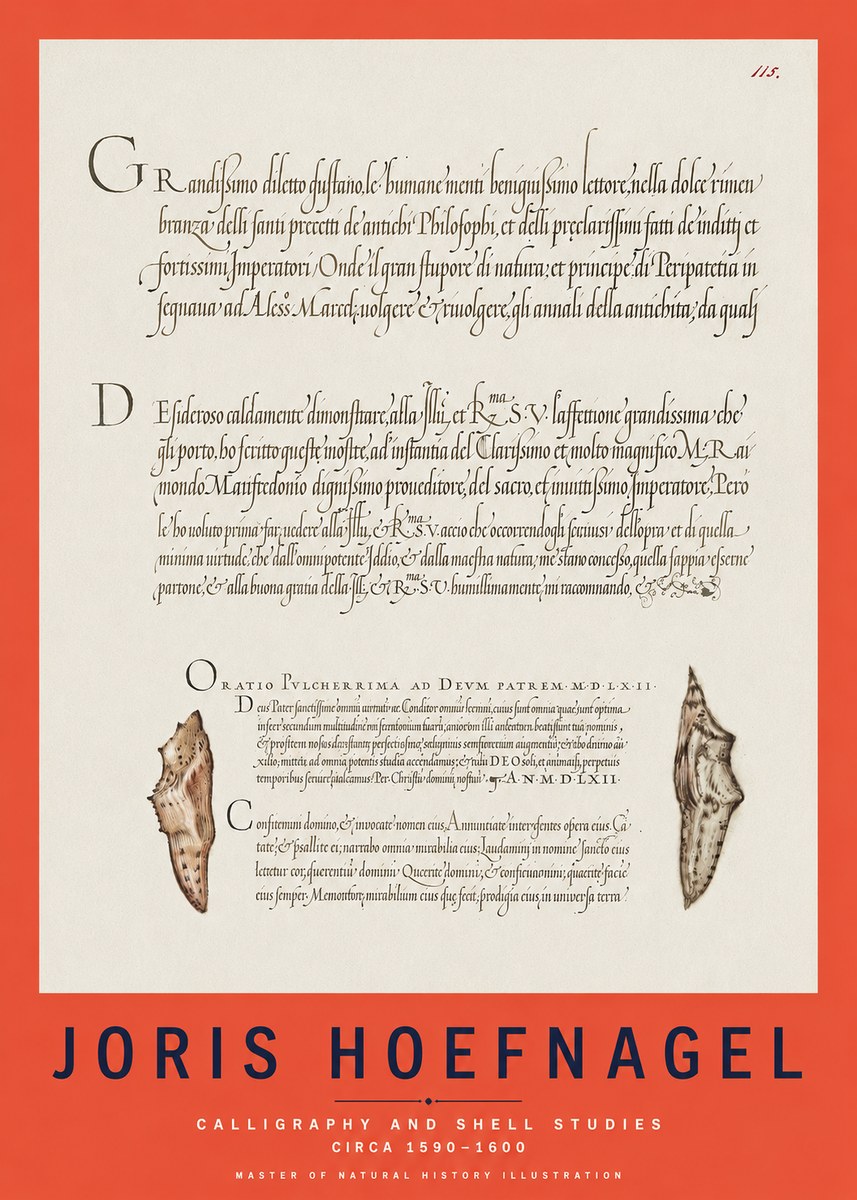 115.
GRandissimo diletto gustano, le humane menti benignissimo lettore, nella dolce rimen
branza delli santi precetti de antichi Philosophi, et delli pręclarissimi fatti de inditti et
fortissimi Imperatori / Onde il gran stupore di natura, et principe di Peripatetia in
segnaua ad Aless.o Marc volgere & riuolgere, gli annali della antichita, da quali
DEsideroso caldamente dimonstrare, alla Illu, et R.ma S. V. l'affettione grandissima che
gli porto, ho scritto queste mostre, ad instantia del Clarissimo et molto magnifico M. Rai
mondo Manfredonio dignissimo proueditore, del sacro, et inuittissimo Imperatore, Però
le ho voluto prima far, vedere alla Illu, & R.ma S. V. accio che occorrendogli seruiusi dell'opra et di quella
minima virtude, che dall'omnipotente Iddio, & dalla maestra natura, me stano concesso, quella sappia esserne
partone, & alla buona gratia della Ill, & R.ma S. V. humillimamente, mi raccomnando, &
ORATIO PVLCHERRIMA AD DEVM PATREM · M·D·L·X·II·
Deus Pater sanctissime omniū Conditor omniū cuius sunt omnia quae sunt optima
inser secundum nominis,
& perfectis
omnia potentis studia accendamus; DEO soli, et perpetuis
temporibus Per Christū dominū nostrū A·N·M·D·LXII·
Confitemini domino, & invocate nomen eius, Annunciate inter gentes opera eius. Cā
tate, & psallite ei; narrabo omnia mirabilia eius; Laudamini in nomine sancto eius
letetur cor, querentiū dominū Querite dominū, & quaerite facie
eius semper. mirabilium eius quę fecit; prodigia eius, in universa terra
JORIS HOEFNAGEL
CALLIGRAPHY AND SHELL STUDIES
CIRCA 1590–1600
MASTER OF NATURAL HISTORY ILLUSTRATION